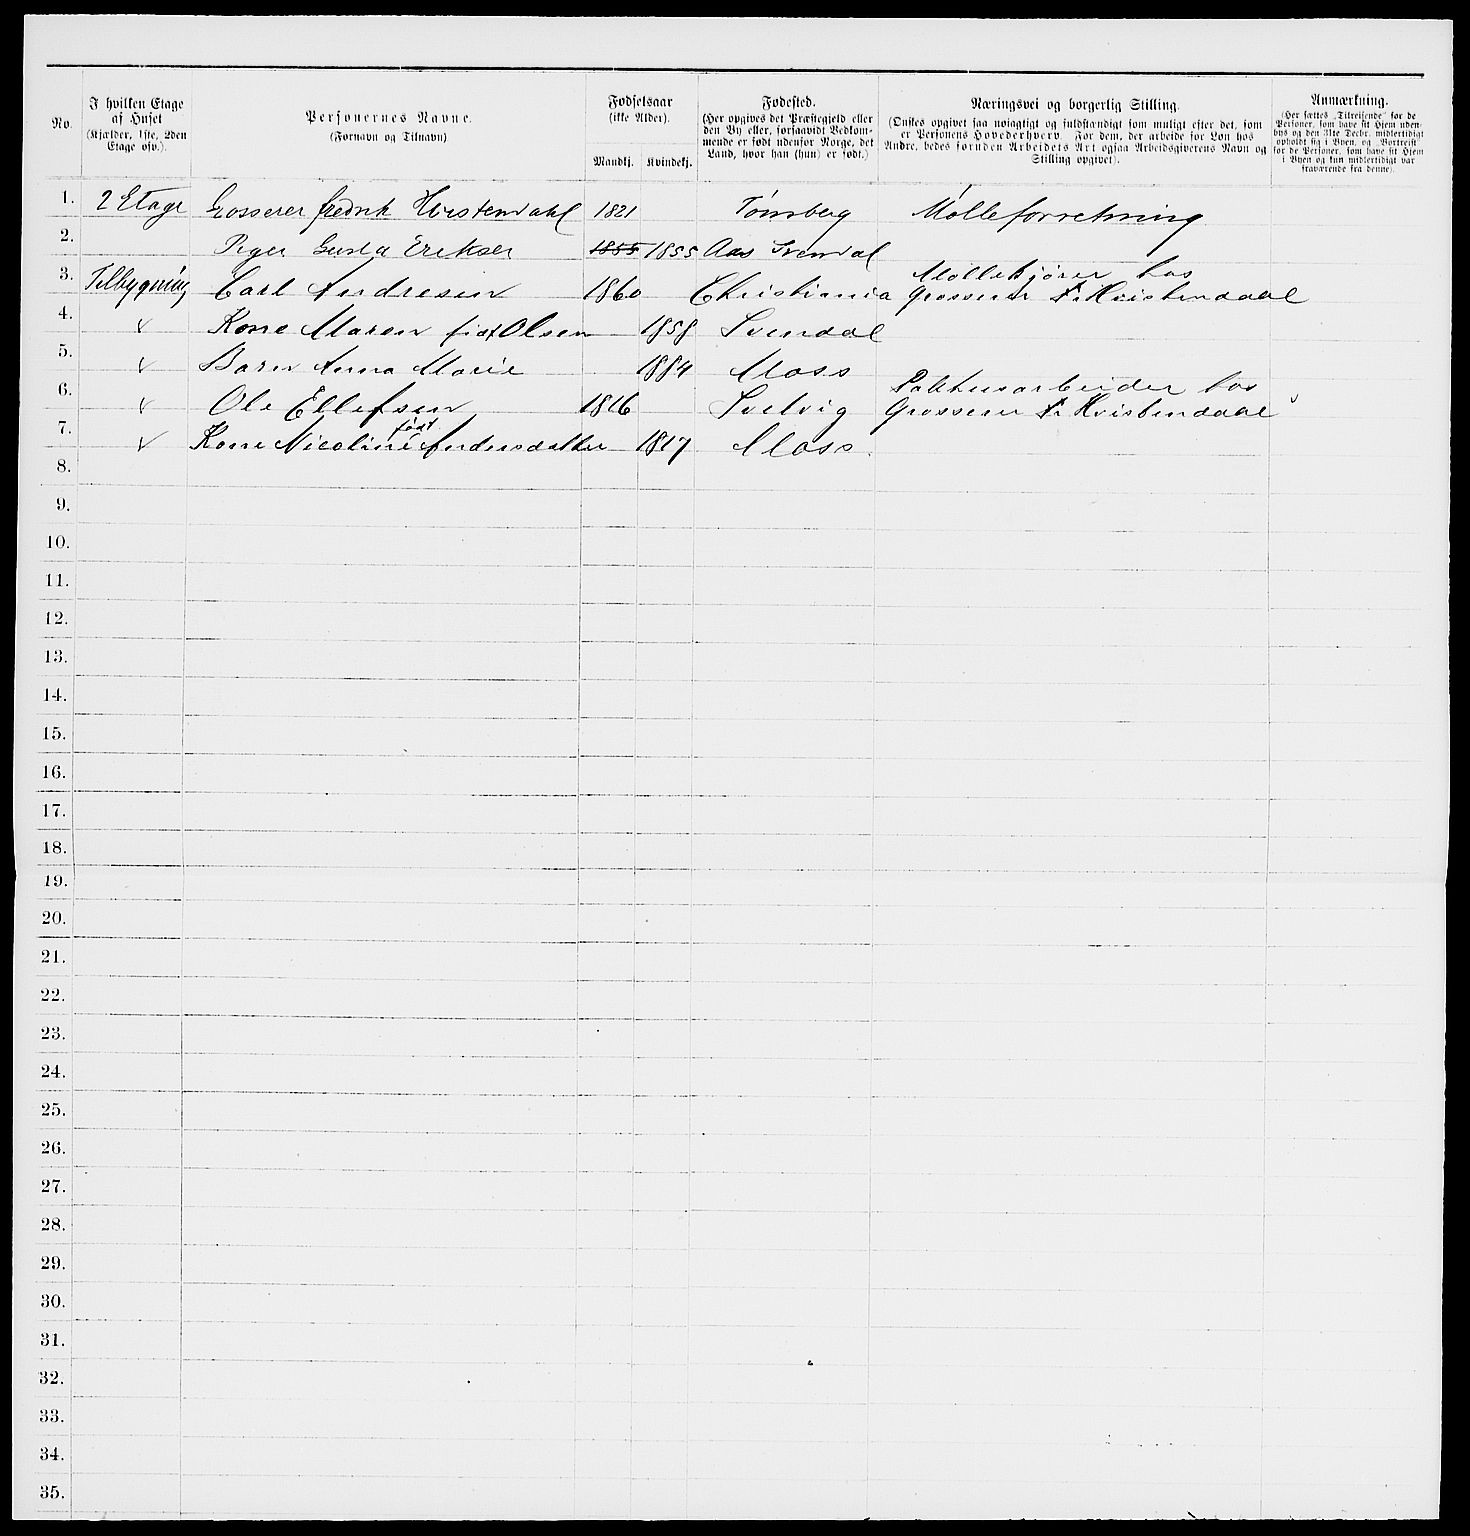 No.
I hvilken Etage af Huset (Kjælder, 1ste, 2den Etage osv.).
Personernes Navne. (Fornavn og Tilnavn)
Fødselsaar (ikke Alder).
Mandkj. Kvindekj.
Fødested. (Her opgives det Præstegjeld eller den By eller, forsaavidt Vedkommende er født udenfor Norge, det Land, hvor han (hun) er født.)
Næringsvei og borgerlig Stilling. (Ønskes opgivet saa nøiagtigt og fuldstændigt som muligt efter det, som er Personens Hovederhverv. For dem, der arbeide for Løn hos Andre, bedes foruden Arbeidets Art ogsaa Arbeidsgiverens Navn og Stilling opgivet).
Anmærkning. (Her sættes „Tilreisende“ for de Personer, som have sit Hjem udenbys og den 31te Decbr. midlertidigt opholdt sig i Byen, og „Bortreist“ for de Personer, som have sit Hjem i Byen og kun midlertidigt var fraværende fra denne).
1. 2 Etage Grosserer Fredrik Hvistendahl 1821 Tønsberg Mølleforretning
2. Piger Gusta Eriksen 1855 1855 Aas
3. Tilbygning Carl Andresen 1860 Christiania Møllekjører hos Grosserer Fr Hvistendaal
4. v Kone Maren født Olsen 1858
5. v Barn Anna Marie 1884 Moss
6. v Ole Ellefsen 1816 Svelvig Pakhusarbeider hos Grosserer Fr Hvistendaal
7. v Kone Nicoline født Andersdatter 1817 Moss.
8.
9.
10.
11.
12.
13.
14.
15.
16.
17.
18.
19.
20.
21.
22.
23.
24.
25.
26.
27.
28.
29.
30.
31.
32.
33.
34.
35.